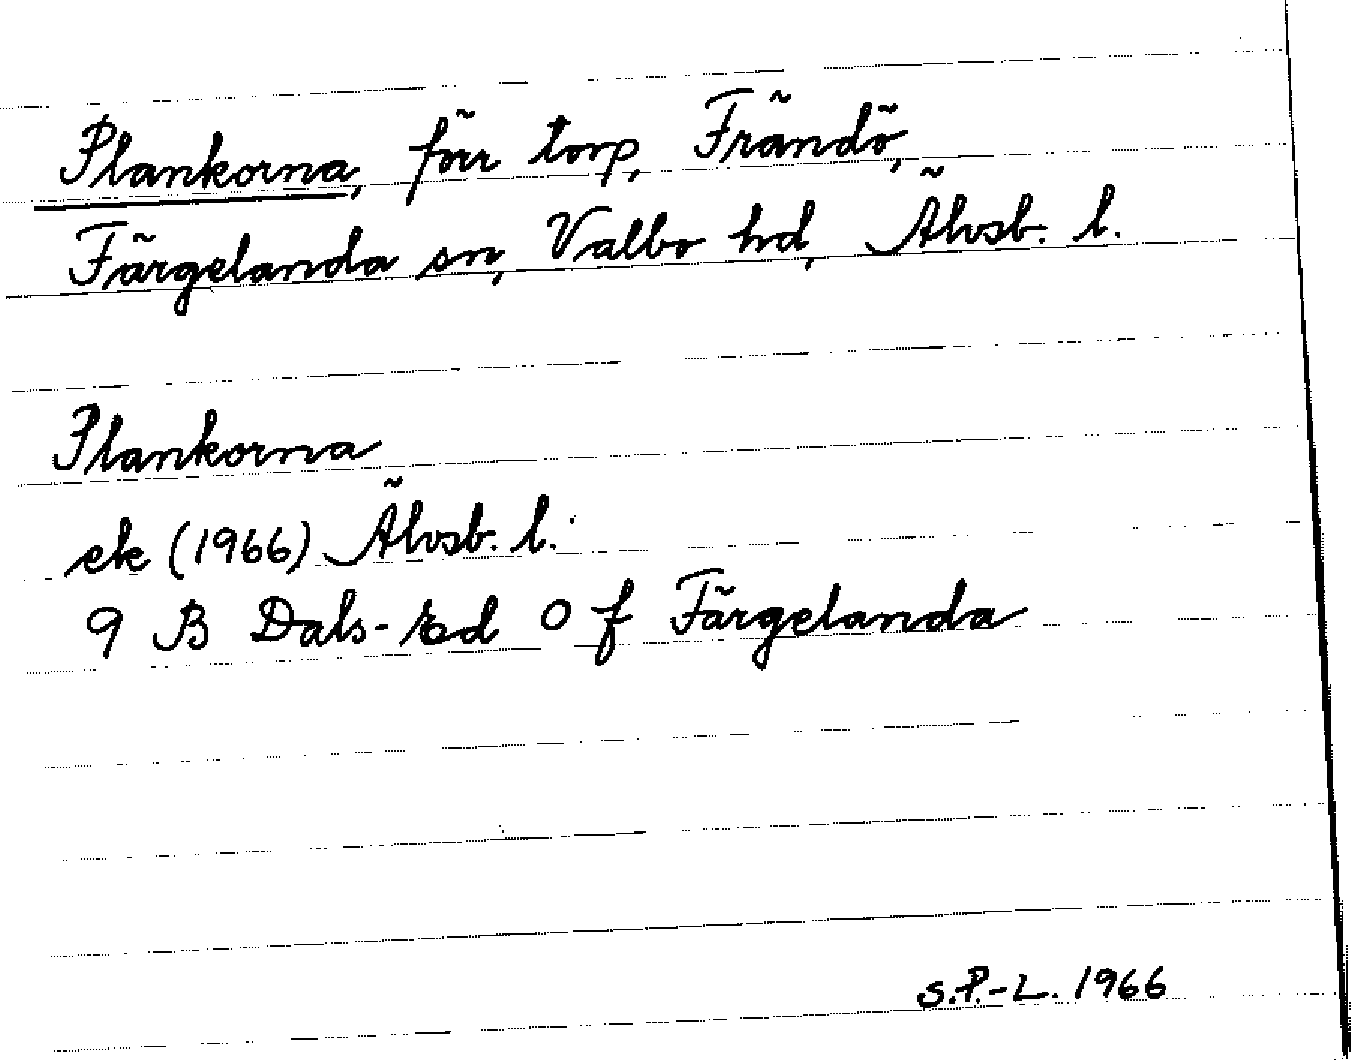 Plankorna, förr torp, Frändö,
Färgelanda sn, Valbo hd, Älvsb. l.
Plankorna
ek (1966) Älvsb. l.
9 B Dals-Ed 0 f Färgelanda
S.P.-L. 1966